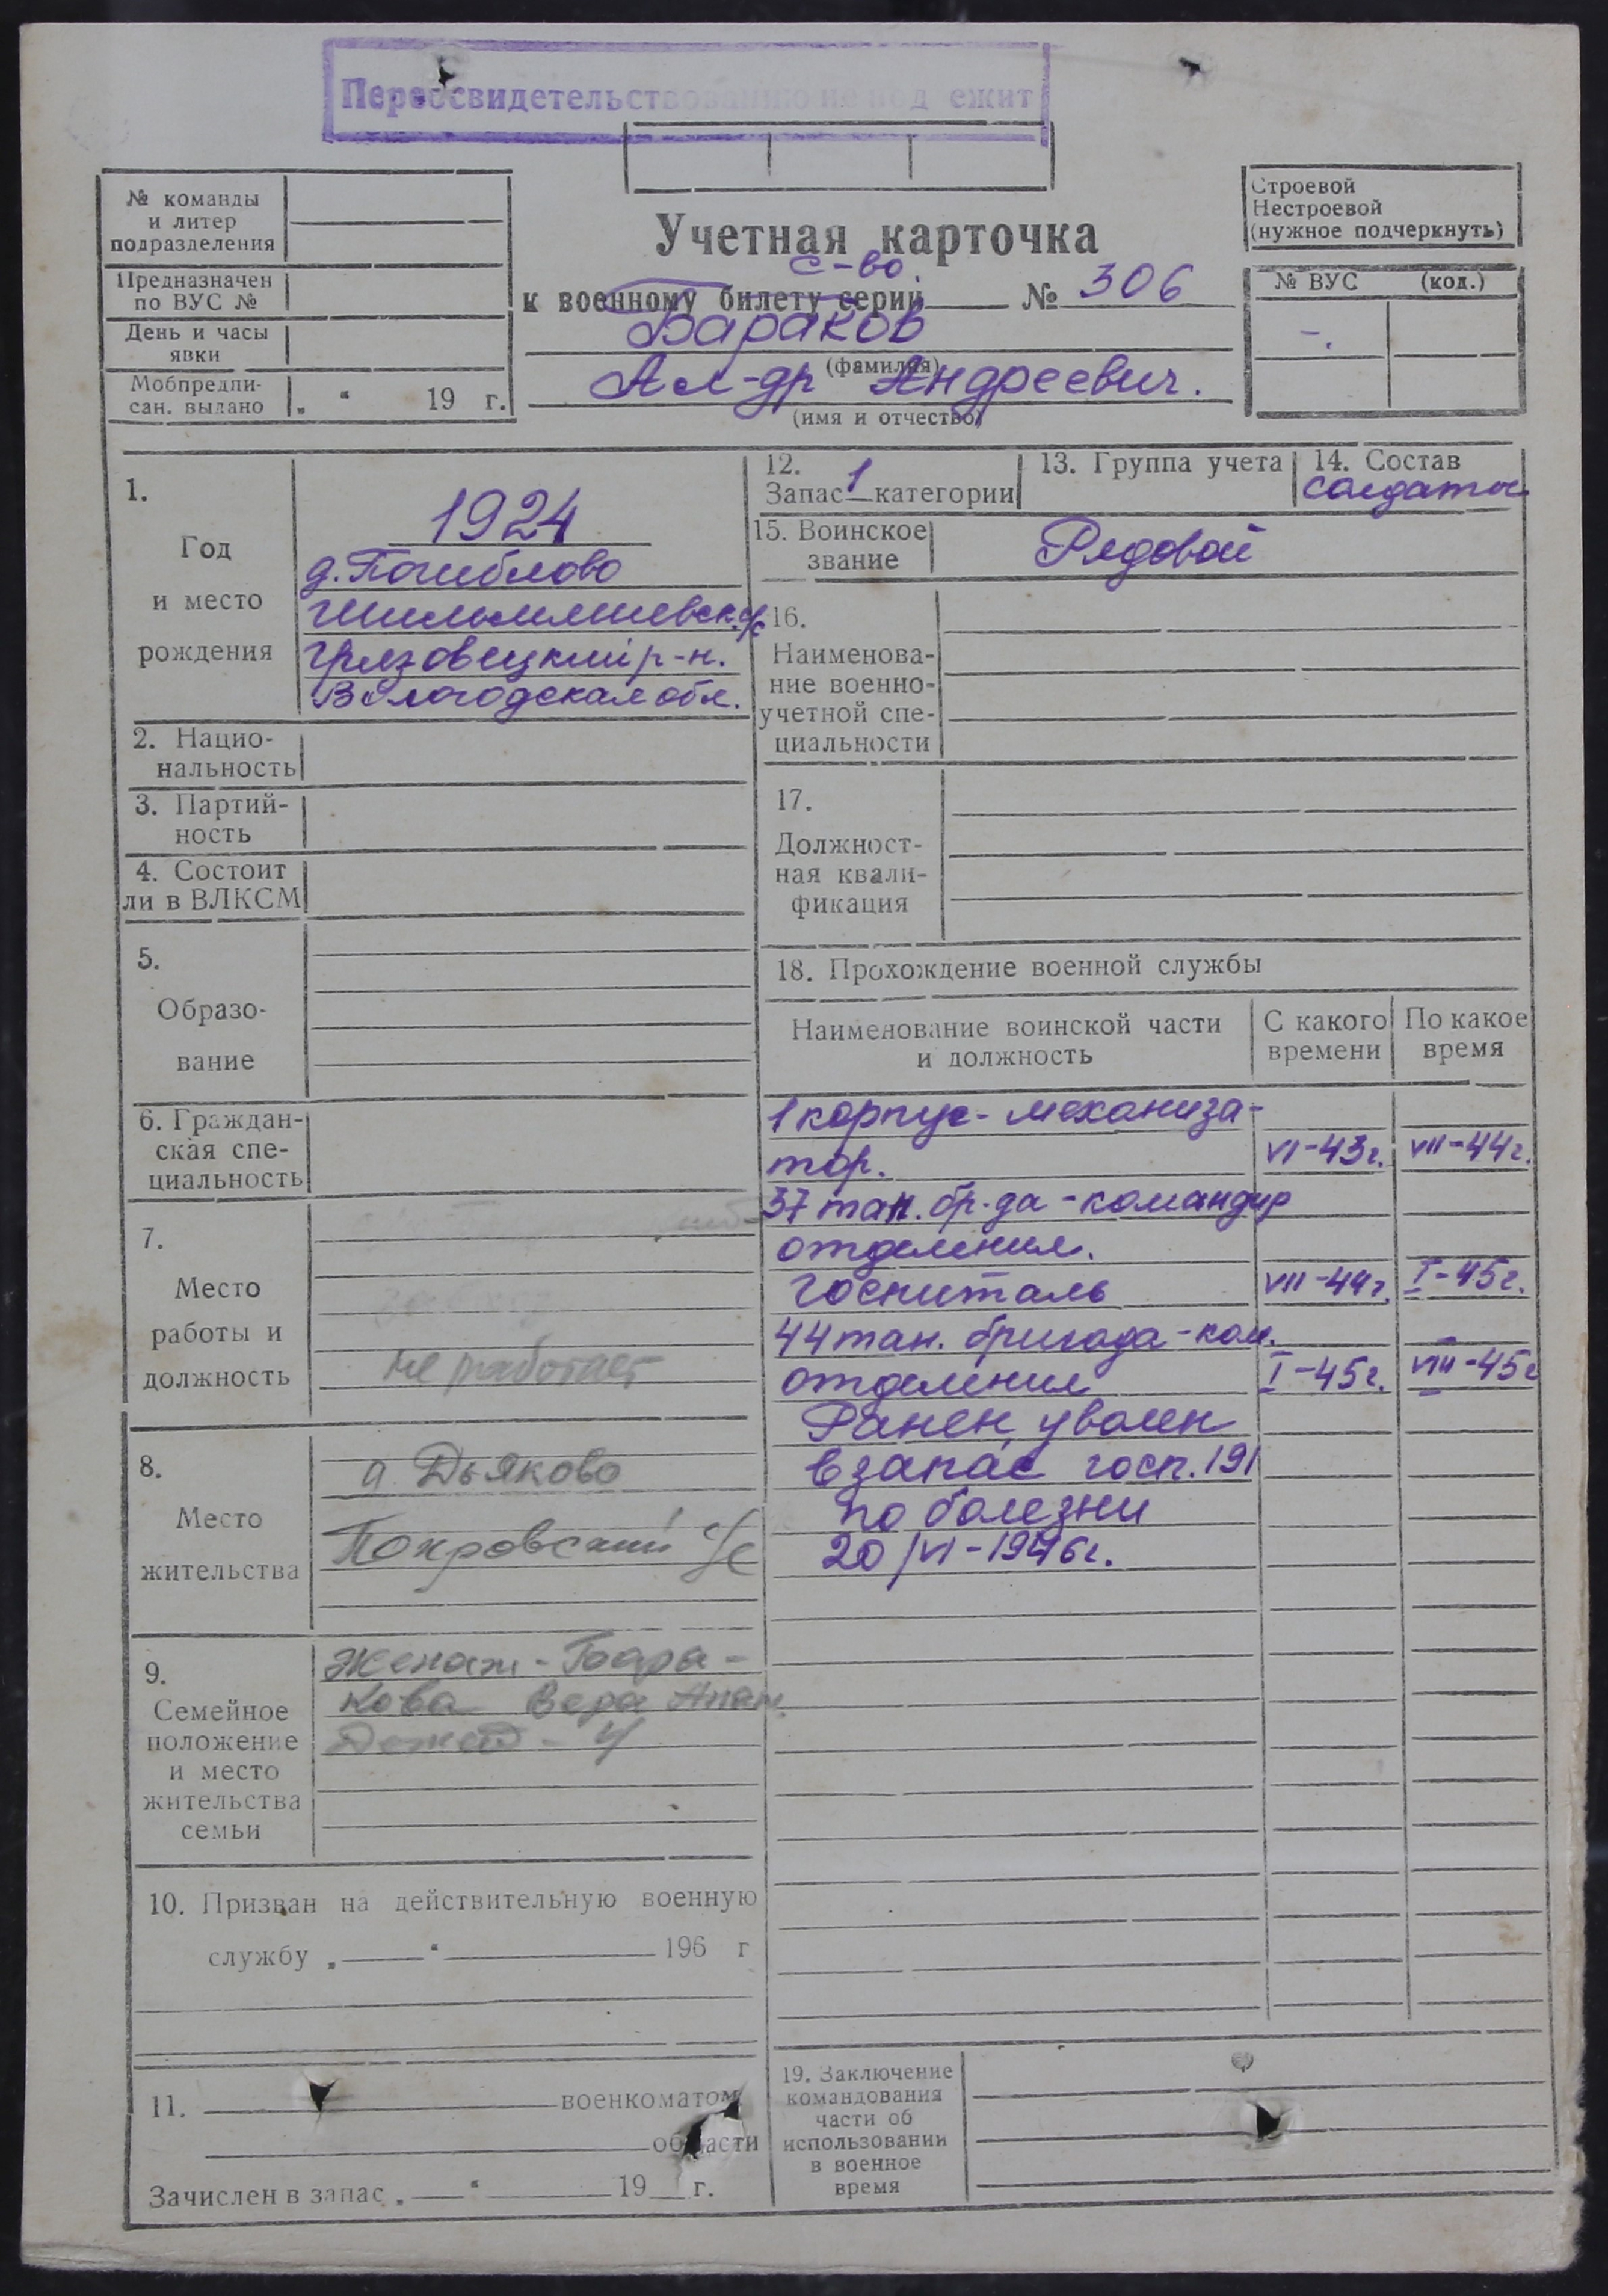 Переосвидетельствованию не под ежит
№ команды
и литер
подразделения
Предназначен
по ВУС №
День и часы
явки
Мобпредпи-
сан. выдано „ “ 19 г.
Учетная карточка
с-во.
к военному билету серии № 306
Бараков
(фамилия)
Ал-др Андреевич.
(имя и отчество)
Строевой
Нестроевой
(нужное подчеркнуть)
№ ВУС (код.)
-.
1.
Год
и место
рождения
1924
д. Погиблово
с/с
Грязовецкий р-н.
Вологодская обл.
2. Нацио-
нальность
3. Партий-
ность
4. Состоит
ли в ВЛКСМ
5.
Образо-
вание
6. Граждан-
ская спе-
циальность
7.
Место
работы и
должность
не работает
8.
Место
жительства
д. Дьяково
Покровский с/с
9.
Семейное
положение
и место
жительства
семьи
Женат - Бара-
кова Вера
10. Призван на действительную военную
службу „ “ 196 г
11. военкоматом
области
Зачислен в запас „ “ 19 г.
12.
Запас 1 категории
13. Группа учета
14. Состав
солдаты
15. Воинское
звание
Рядовой
16.
Наименова-
ние военно-
учетной спе-
циальности
17.
Должност-
ная квали-
фикация
18. Прохождение военной службы
Наименование воинской части
и должность
С какого
времени
По какое
время
1 корпус - механиза-
тор. VI-43г. VII-44г.
37 тан. бр-да - командир
отделения.
госпиталь VII-44г. I-45г.
44 тан. бригада - ком.
отделения I-45г. VIII-45г
Ранен, уволен
в запас госп. 191
по болезни
20/VI-1946г.
19. Заключение
командования
части об
использовании
в военное
время